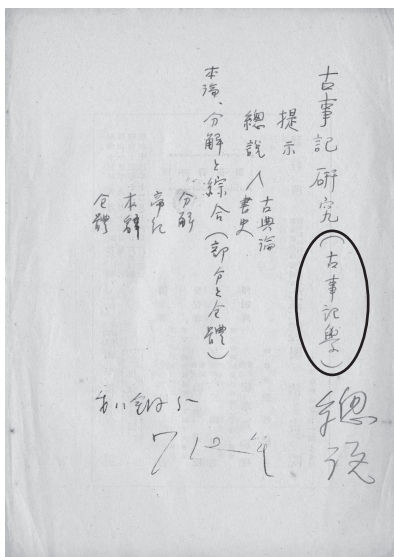 古事記研究(古事記學)
總説
提示
總説
古典論
書史
本論、分解と綜合(部分と全體)
分解
帝紀
本辭
全體